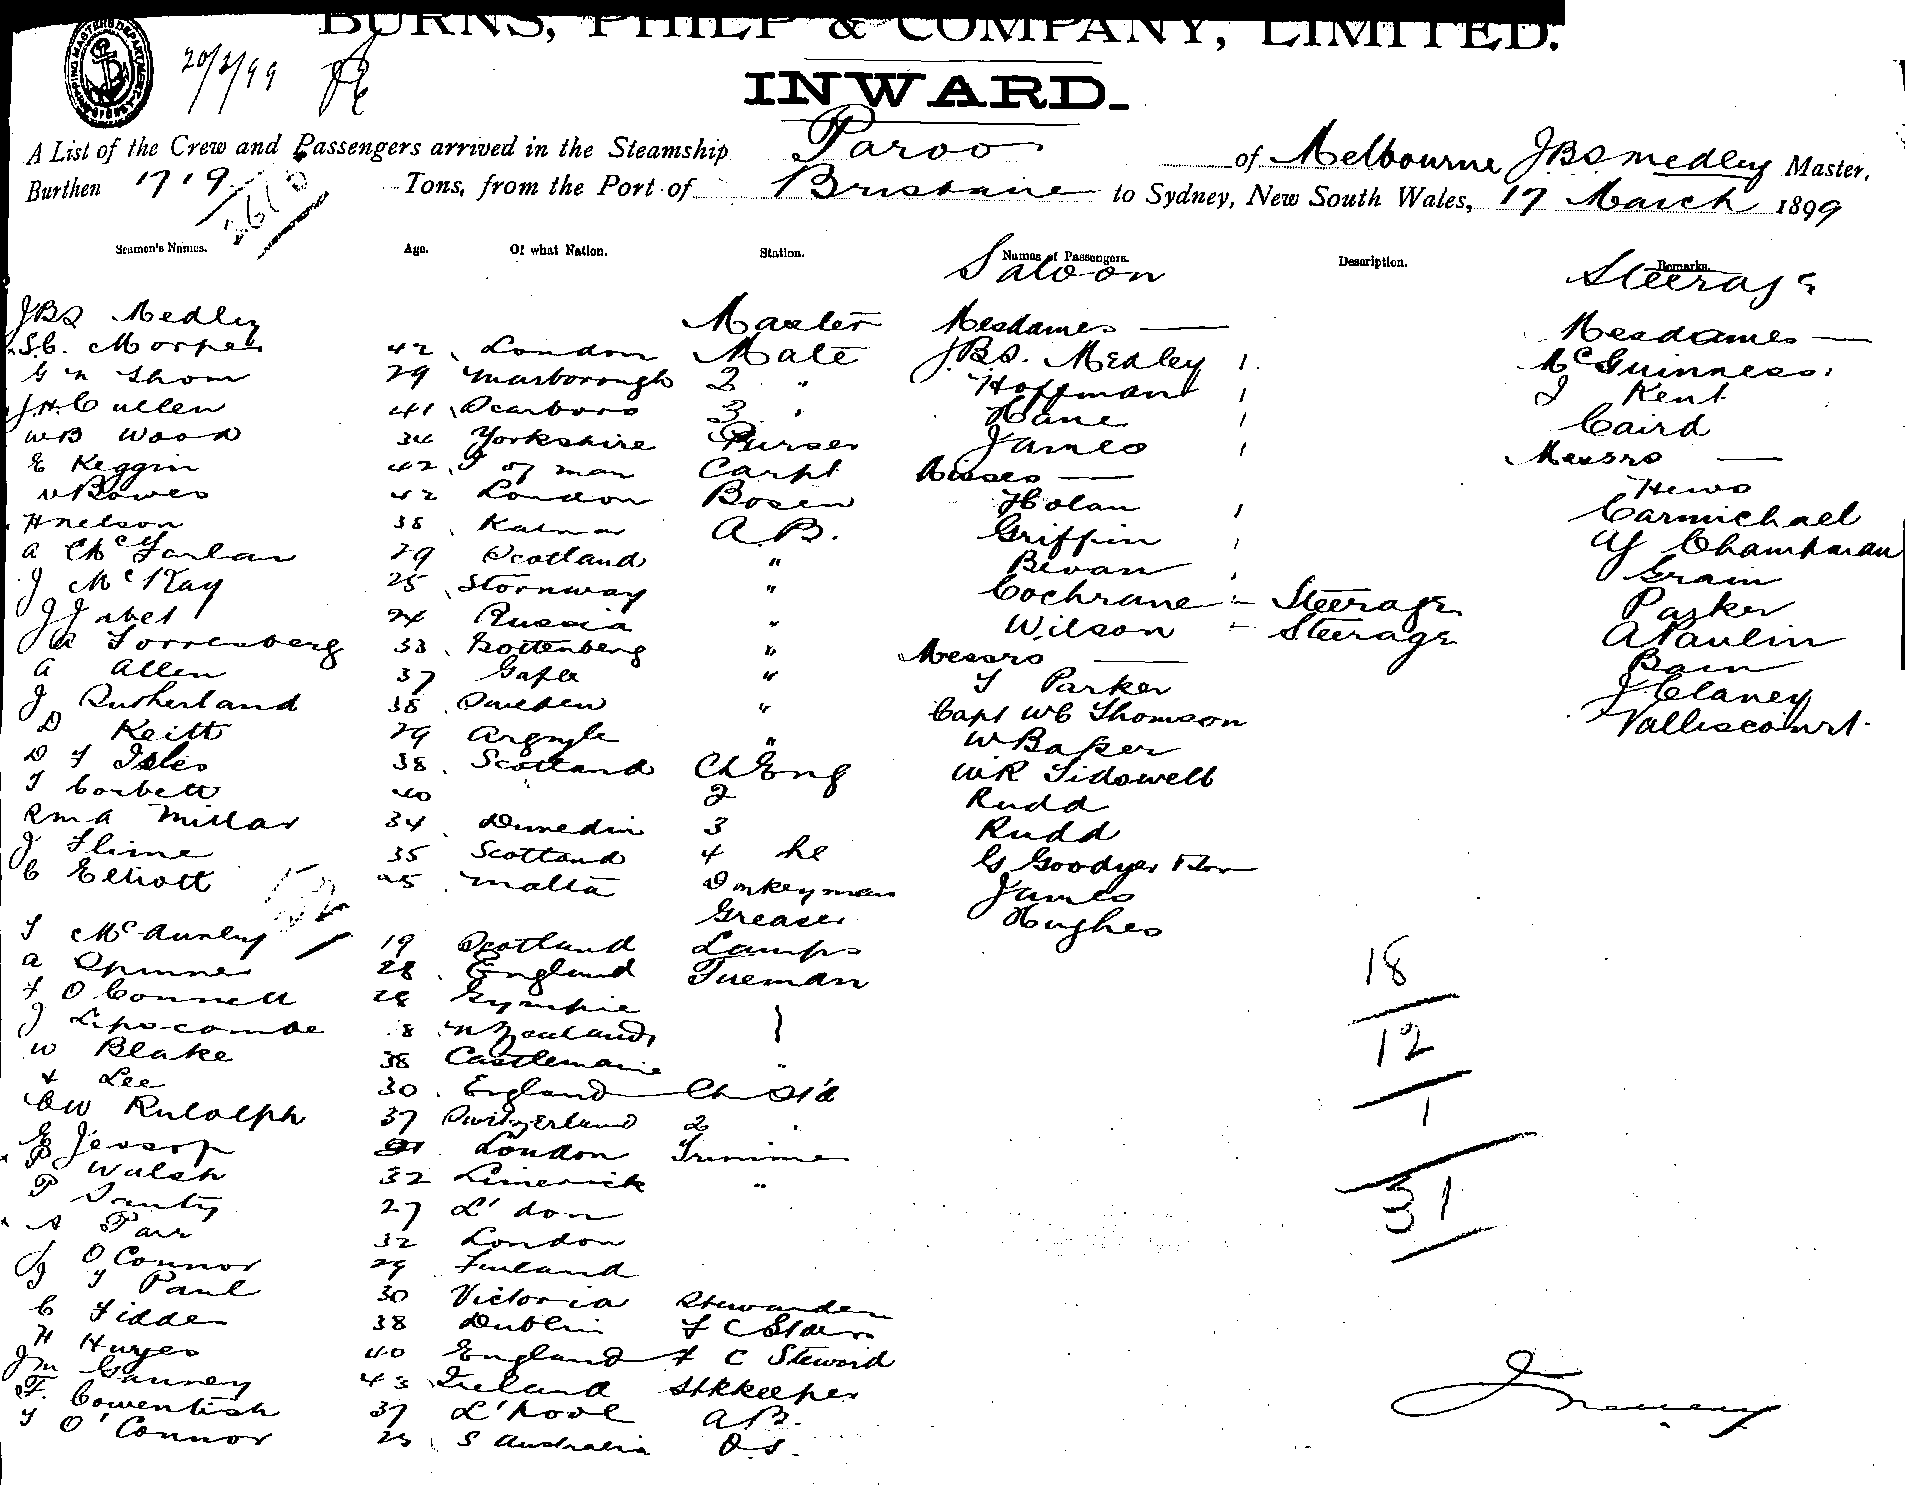 BURNS, PHILP & COMPANY, LIMITED.
20/3/99
INWARD.
A List of the Crew and Passengers arrived in the Steamship Paroo of Melbourne JBS Medley Master,
Burthen 1719 Tons, from the Port of Brisbane to Sydney, New South Wales, 17 March 1899
Seamen's Names. Age. Of what Nation. Station. Names of Passengers. Description. Remarks.
Saloon Steerage
JBS Medley Master Mesdames — Mesdames —
42 London Mate JBS. Medley 1 McGuinness
G N Thom 29 Marborough 2 " Hoffman 1 J Kent
JH Cullen 41 Scarboro 3 " Kane 1 Caird
WB Wood 34 Yorkshire Purser James 1 Messrs —
E Keggin 42 I of man Carpt Misses — Hews
Bowes 42 London Bosen Holan 1 Carmichael
H Nelson 38 Kalmar A.B. Griffin 1 Chambman
A McFarlan 29 Scotland " Bevan 1 Grain
J McKay 25 Stornway " Cochrane - Steerage Parker
24 Russia " Wilson - Steerage A Paulin
Torrenberg 33 Gottenberg " Messrs — Bain
A Allen 37 Gafle " T Parker J Clancy
J Rutherland 38 Sweden " Capt WC Thomson Valliscourt
D Keith 29 Argyle " W Baker
D T Isles 38 Scotland Ch Eng WR Sidswell
T Corbett 40 2 Rudd
RMA Millar 34 Dunedin 3 Rudd
J Slime 35 Scotland 4 he G Goodyer
C Elliott 25 Malta Donkeyman James
Greaser Hughes
T McAunley 19 Scotland Lamps
A Spinner 28 England Fireman 18
T O'Connell 28 Gympie
J Lipscombe 8 N Zealand 12
W Blake 38 Castlemaine "
Lee 30 England Ch St'd
CW Rudolph 37 Switzerland 2 " 1
Jessop London Trimmer
Walsh 32 Limerick " 31
P 27 L'don
A Parr 32 London
J O'Connor 29 Finland
J T Paul 30 Victoria Stewardess
C Fidde 38 Dublin
H Hayes 40 England F C Steward
JM Gauney 43 Ireland Stkkeeper
F. Cowentish 37 L'pool A B.
T O'Connor 25 S Australia O.S.